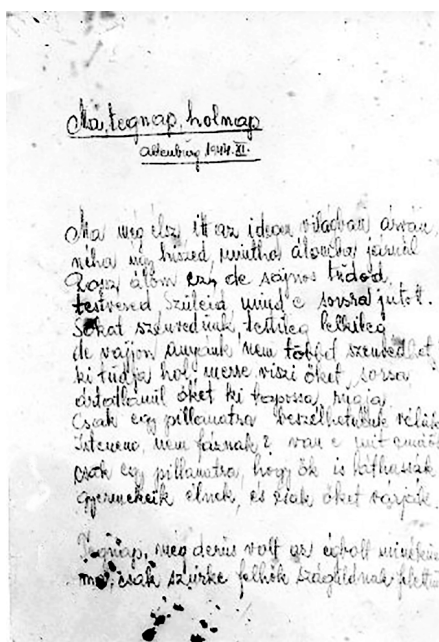 Ma, tegnap, holnap
Altenburg 1944. XI.
Ma még élsz itt az idegen világban árván,
néha még hiszed, mintha álomban járnál
Rossz álom ez, de sajnos tudod,
testvéred szüleid mind e sorsra jutott.
Sokat szenvedünk testileg lelkileg
de vajjon anyánk nem többet szenvedhet,
ki tudja hol, messze viszi őket sorsa
ártatlanul őket ki taposta, rúgja
Csak egy pillanatra beszélhetnénk vélük
Istenem, nem fáznak? van e mit enniök
csak egy pillanatra, hogy ők is láthassák
gyermekeik élnek, és csak őket várják.
Tegnap, még derüs volt az égbolt
ma, csak szürke felhők szágúldnak